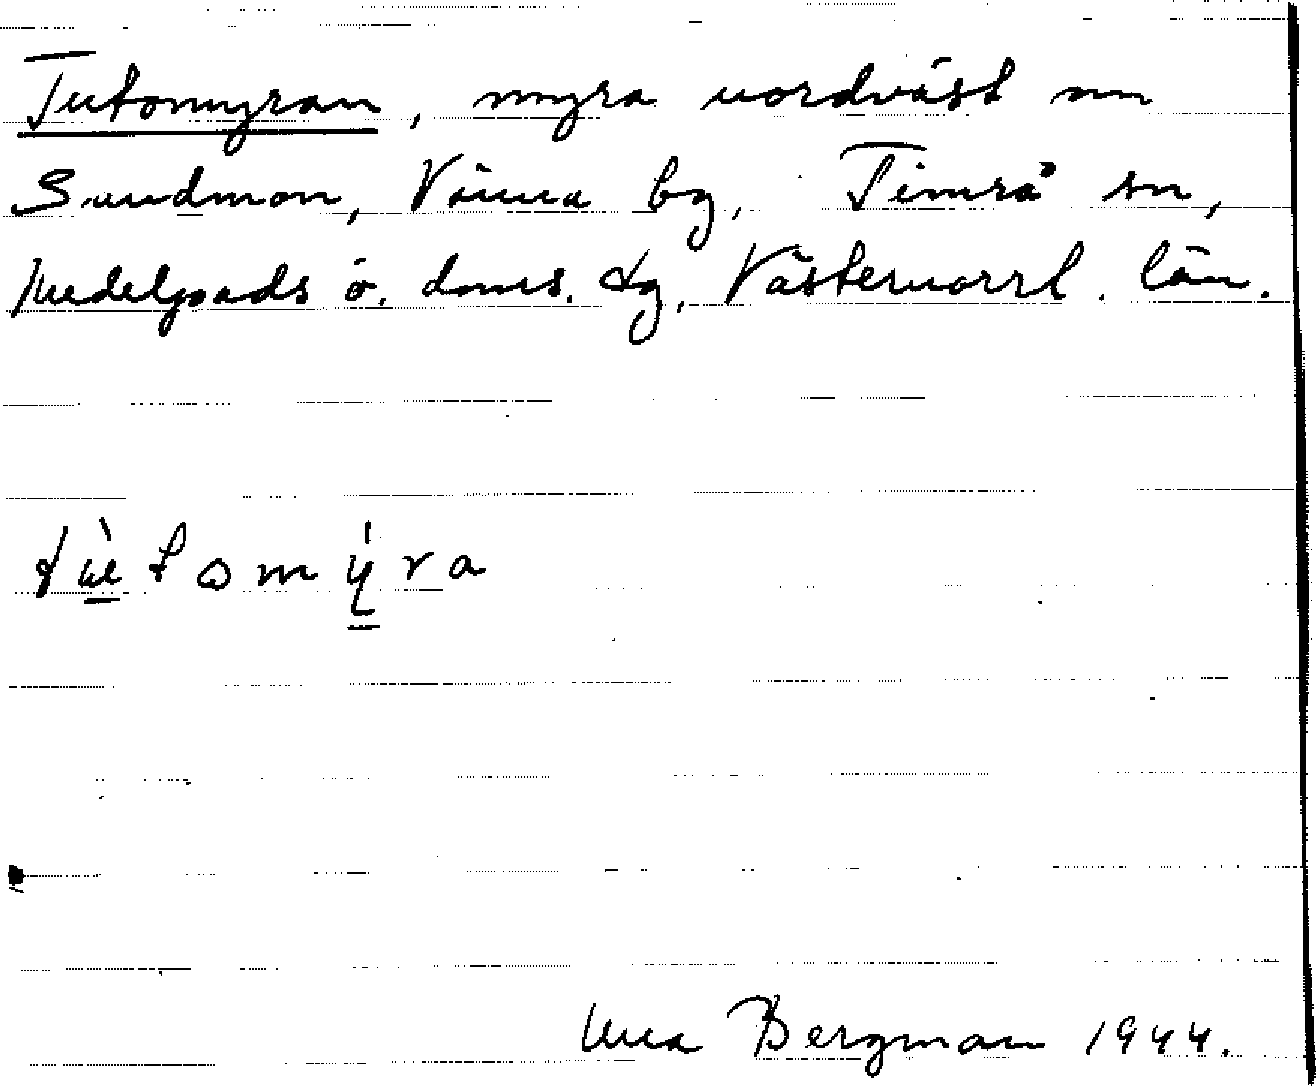 Tutomyran, myra nordväst om
Sundmon, Vänna by, Timrå sn,
Medelpads ö. doms. dg, Västernorrl. län.
tùtomýra
Una Bergman 1944.